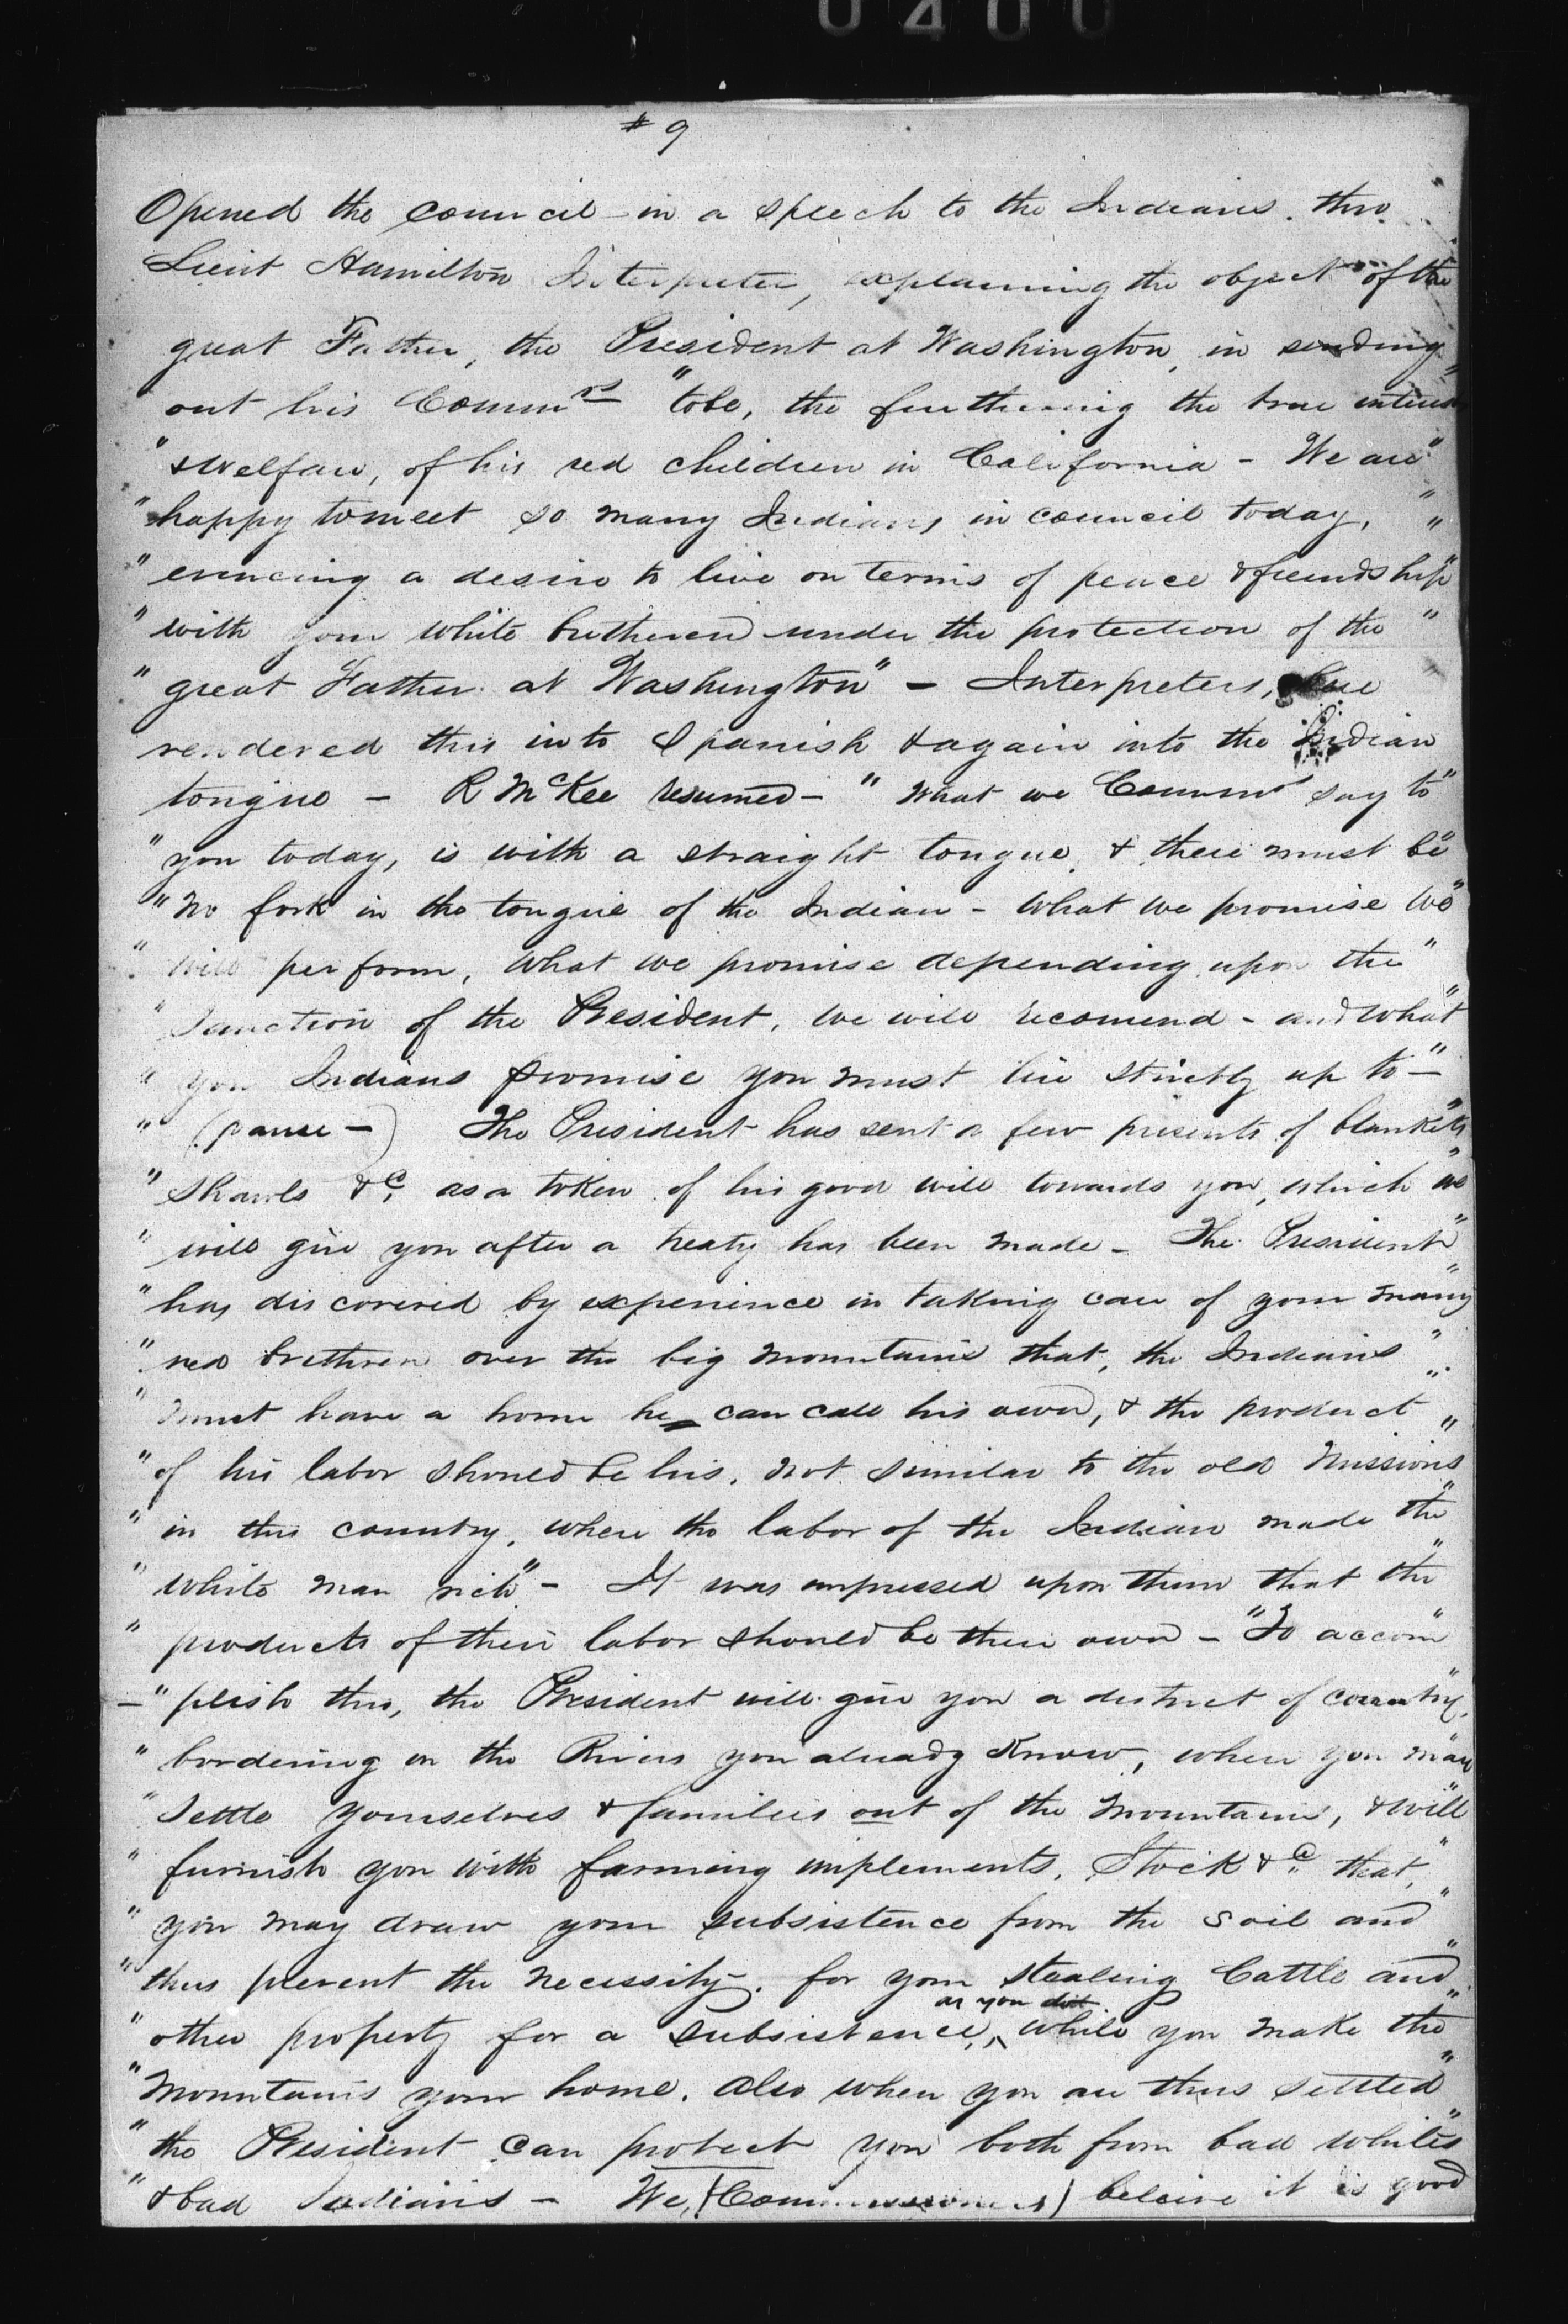 0400
# 9
Opened the council in a speech to the Indians. thro
Lieut Hamilton Interpreter, explaining the object of the
great Father, the President at Washington, in sending
out his Comm.rs "to be, the furthering the true interest
" & welfare, of his red children in California - We are "
" happy to meet so many Indians, in council today, "
" evincing a desire to live on terms of peace & friendship "
" with your white bretheren under the protection of the "
" great Father at Washington" - Interpreters, here
rendered this into Spanish & again into the Indian
tongue - R McKee resumed - " What we Commrs say to "
" you today, is with a straight tongue, & there must be "
" no fork in the tongue of the Indian - What we promise we "
" will perform, What we promise depending upon the "
" Sanction of the President, we will recomend - and what "
" you Indians promise you must live strictly up to - "
" (pause -) The President has sent a few presents of blankets "
" Shawls &c. as a token of his good will towards you, which we "
" will give you after a treaty has been made - The President "
" has discovered by experience in taking care of your many "
" red brethren over the big mountains that, the Indians "
" must have a home he can call his own, & the product "
" of his labor should be his, not similar to the old Missions "
" in this country, where the labor of the Indian made the "
" white man rich" - It was impressed upon them that the "
" products of their labor should be their own - "To accom "
- " plish this, the President will give you a district of country, "
" bordering on the Rivers you already Know, where you may "
" Settle yourselves & families out of the Mountains, & will "
" furnish you with farming implements, Stock &c. that, "
" you may draw your subsistence from the soil and "
" thus prevent the necessity, for your stealing Cattle and "
as you did
" other property for a subsistence, ^ while you make the "
" Mountains your home. Also when you are thus settled "
" the President can protect you both from bad whites "
" & bad Indians - We, (Commissioners) beleive it is good